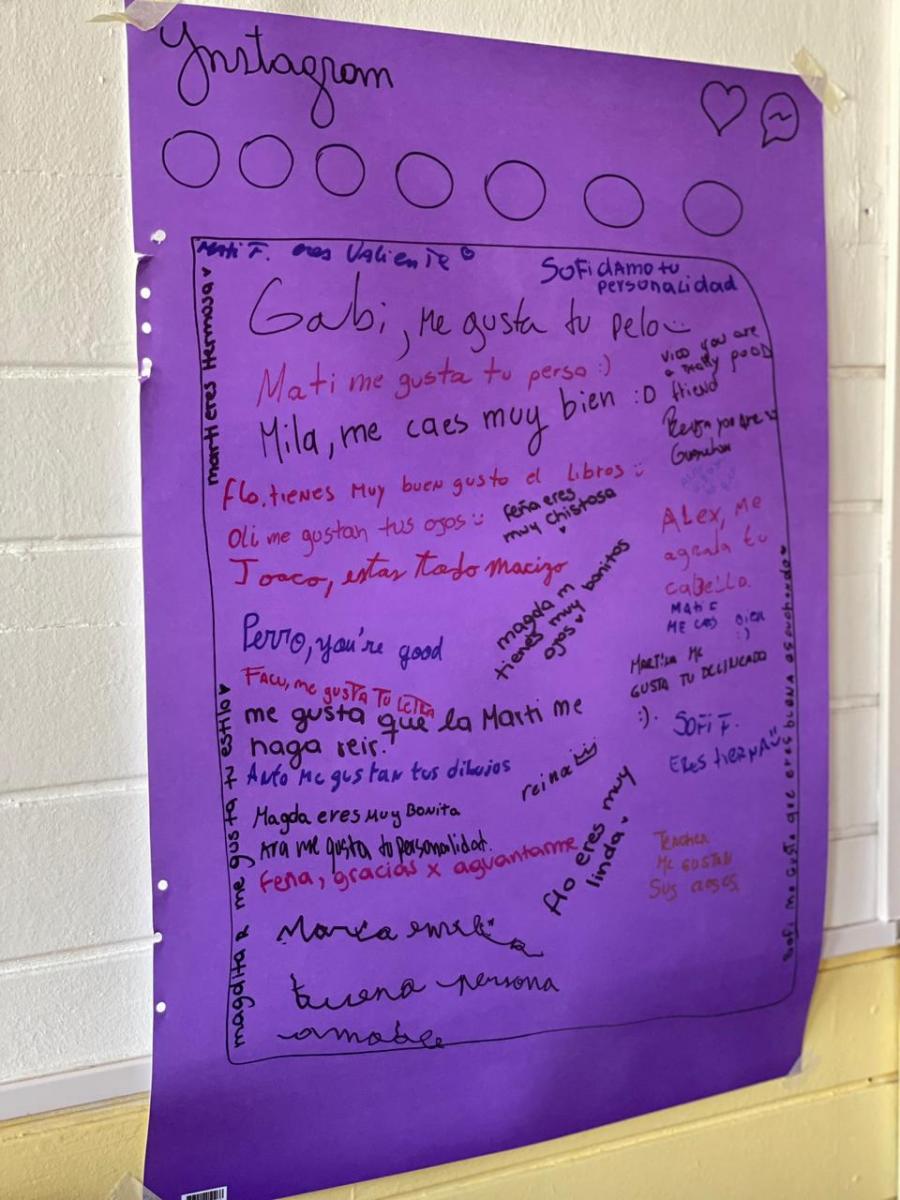 Ynstagram
Mati F. eres Valiente
SOFi dAMo tu
personalidad
marti eres Hermosa ♥
Gabi, Me gusta tu pelo
Mati me gusta tu perso :)
Mila, me caes muy bien :D
Vico you are
a really good
friend
you are
Flo. tienes Muy buen gusto el libros
feña eres
muy chistosa
Oli me gustan tus ojos
Joaco, estas Todo Macizo
ALex, Me
agrada tu
cabello.
magda m
tienes muy bonitos
ojos ♥
Mati F
ME CAES BIEN
:)
Perro, you're good
FACU, me gusTA TU LETRA
MARTINA ME
GUSTA TU DELINEADO
:).
me gusta que la Marti me
haga reir.
SOFi F.
ERES tiERNA
Anto Me gustan tus dibujos
reina
Magda eres Muy Bonita
ATA me gusta tu personalidad.
Feña, gracias x aguantarme
flo eres muy
linda ♥
TEACHER
ME GUSTAN
SUS AROS
magdita R me gusta tu estilo ♥
Sofi me gusta que eres buena escuchando ♥
Maria emilia
buena persona
amable